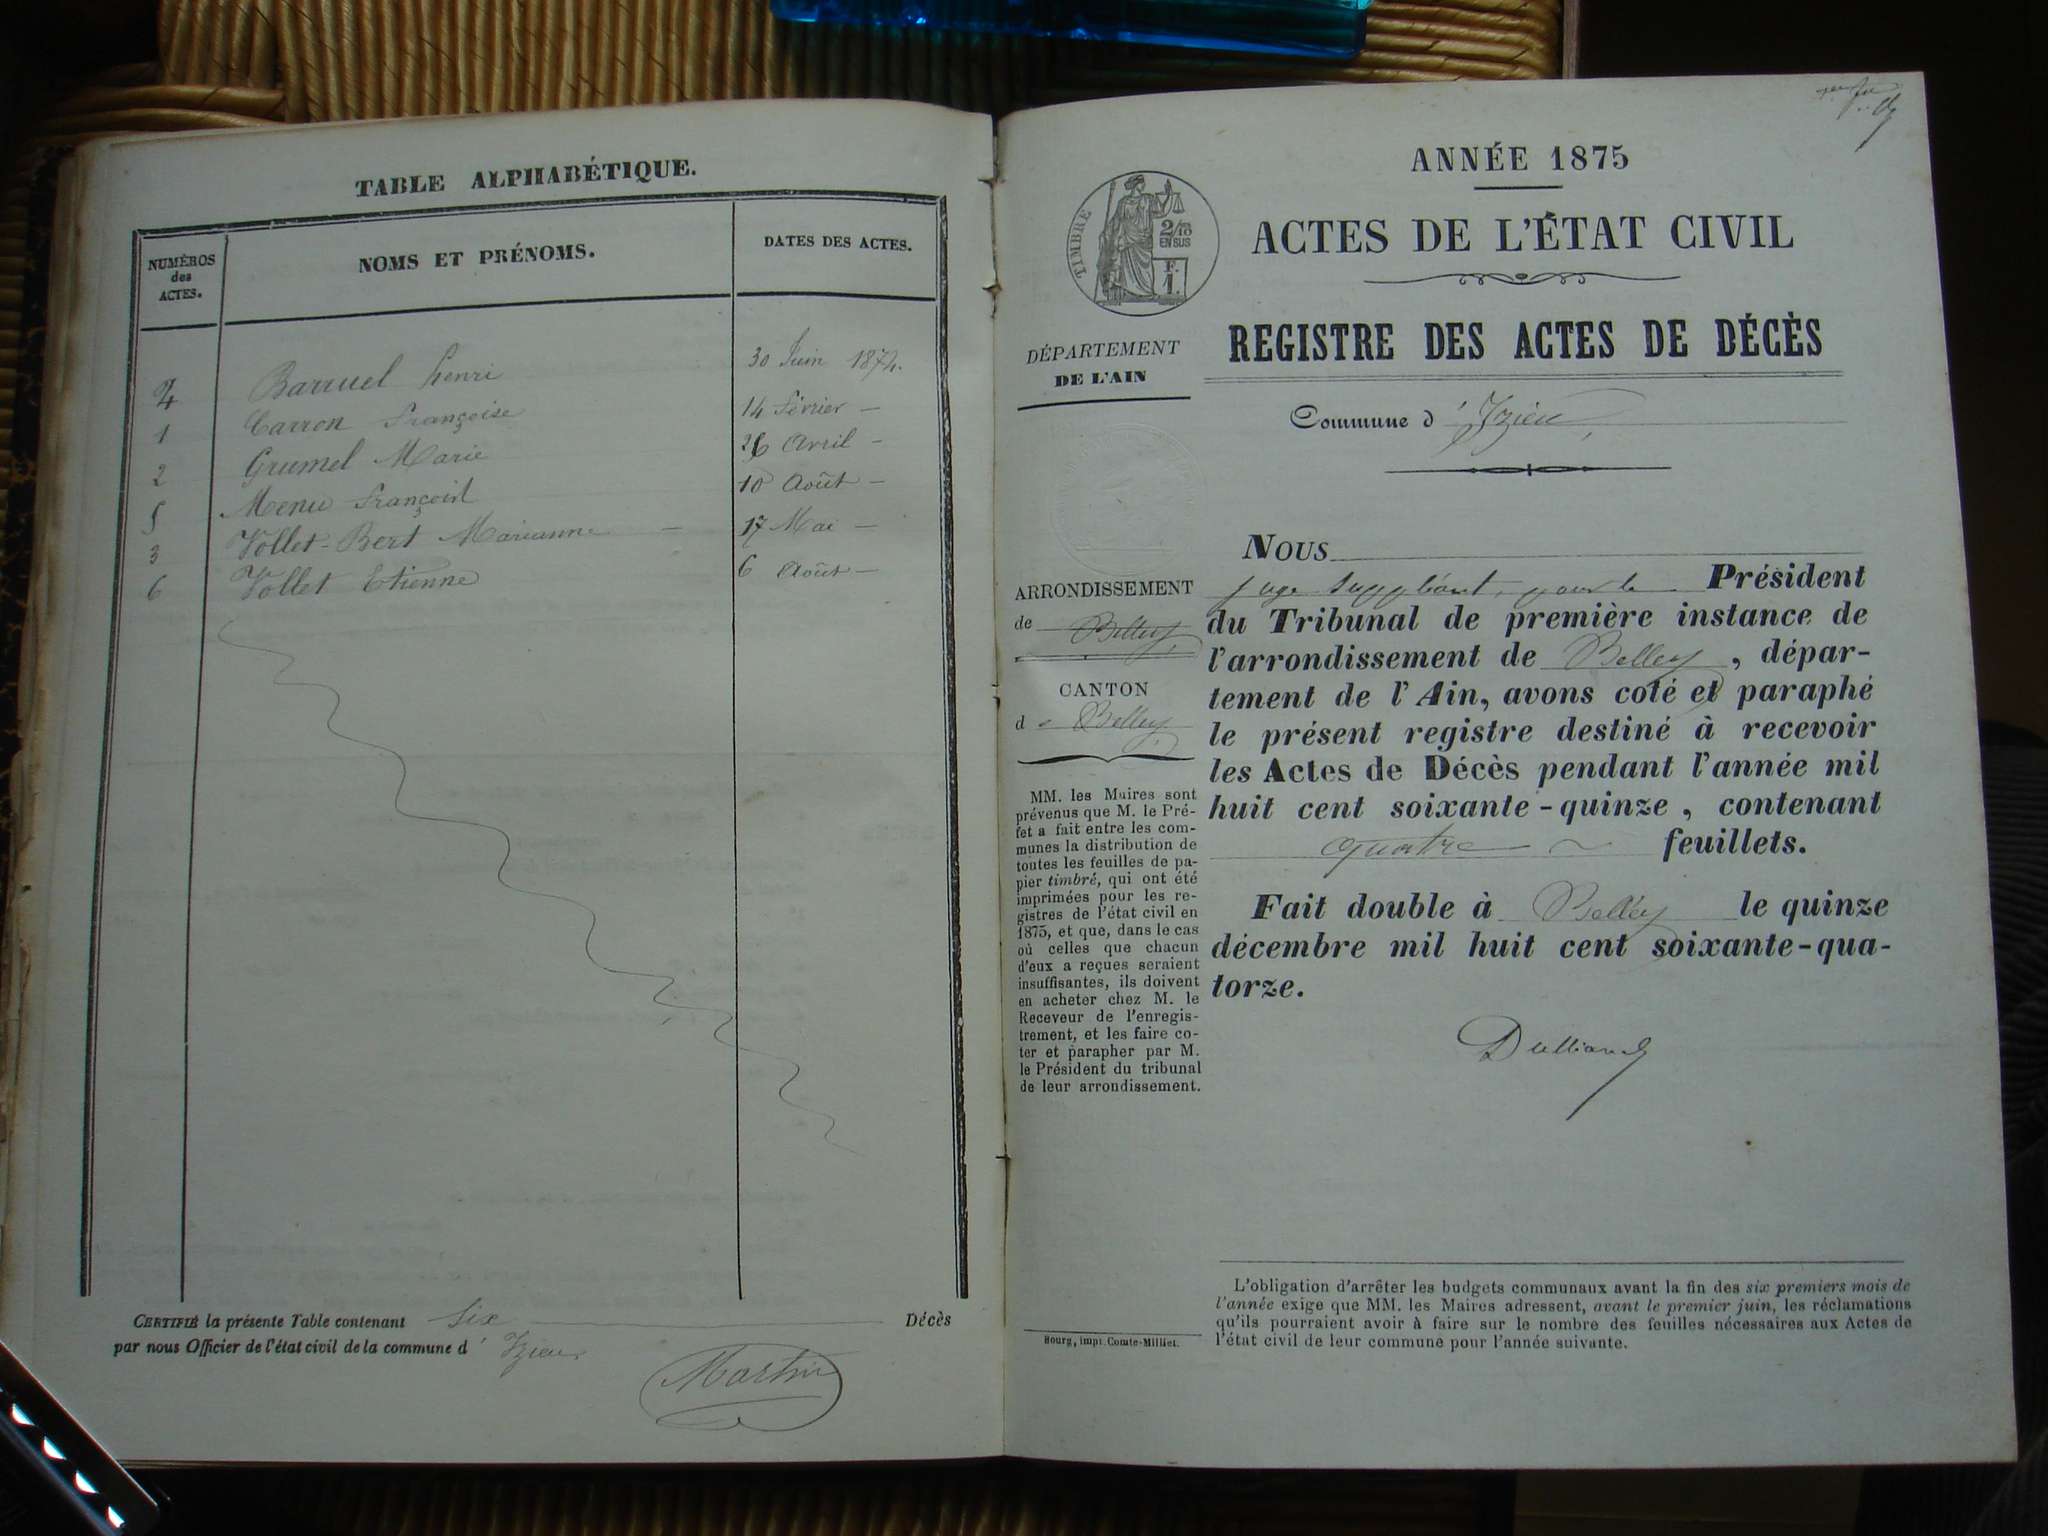 TABLE ALPHABÉTIQUE.
NUMÉROS
des
ACTES.
NOMS ET PRÉNOMS.
DATES DES ACTES.
4 Barruel henri 30 Juin 1874.
1 Carron Françoise 14 Février —
2 Grumel Marie 26 Avril —
5 Menu François 10 Août —
3 Vollet-Bert Marianne — 17 Mai —
6 Vollet Etienne 6 Août —
CERTIFIÉ la présente Table contenant six Décès
par nous Officier de l'état civil de la commune d' Izieu
Martin
ANNÉE 1875
TIMBRE
2/10
EN SUS
F.
1.
ACTES DE L'ÉTAT CIVIL
REGISTRE DES ACTES DE DÉCÈS
DÉPARTEMENT
DE L'AIN
Commune d' Izieu
ARRONDISSEMENT
de Belley
CANTON
de Belley
MM. les Maires sont
prévenus que M. le Pré-
fet a fait entre les com-
munes la distribution de
toutes les feuilles de pa-
pier timbré, qui ont été
imprimées pour les re-
gistres de l'état civil en
1875, et que, dans le cas
où celles que chacun
d'eux a reçues seraient
insuffisantes, ils doivent
en acheter chez M. le
Receveur de l'enregis-
trement, et les faire co-
ter et parapher par M.
le Président du tribunal
de leur arrondissement.
Bourg, impr. Comte-Milliet.
NOUS
juge suppléant, pour le Président
du Tribunal de première instance de
l'arrondissement de Belley, dépar-
tement de l'Ain, avons coté et paraphé
le présent registre destiné à recevoir
les Actes de Décès pendant l'année mil
huit cent soixante-quinze, contenant
quatre feuillets.
Fait double à Belley le quinze
décembre mil huit cent soixante-qua-
torze.
Dulliand
L'obligation d'arrêter les budgets communaux avant la fin des six premiers mois de
l'année exige que MM. les Maires adressent, avant le premier juin, les réclamations
qu'ils pourraient avoir à faire sur le nombre des feuilles nécessaires aux Actes de
l'état civil de leur commune pour l'année suivante.